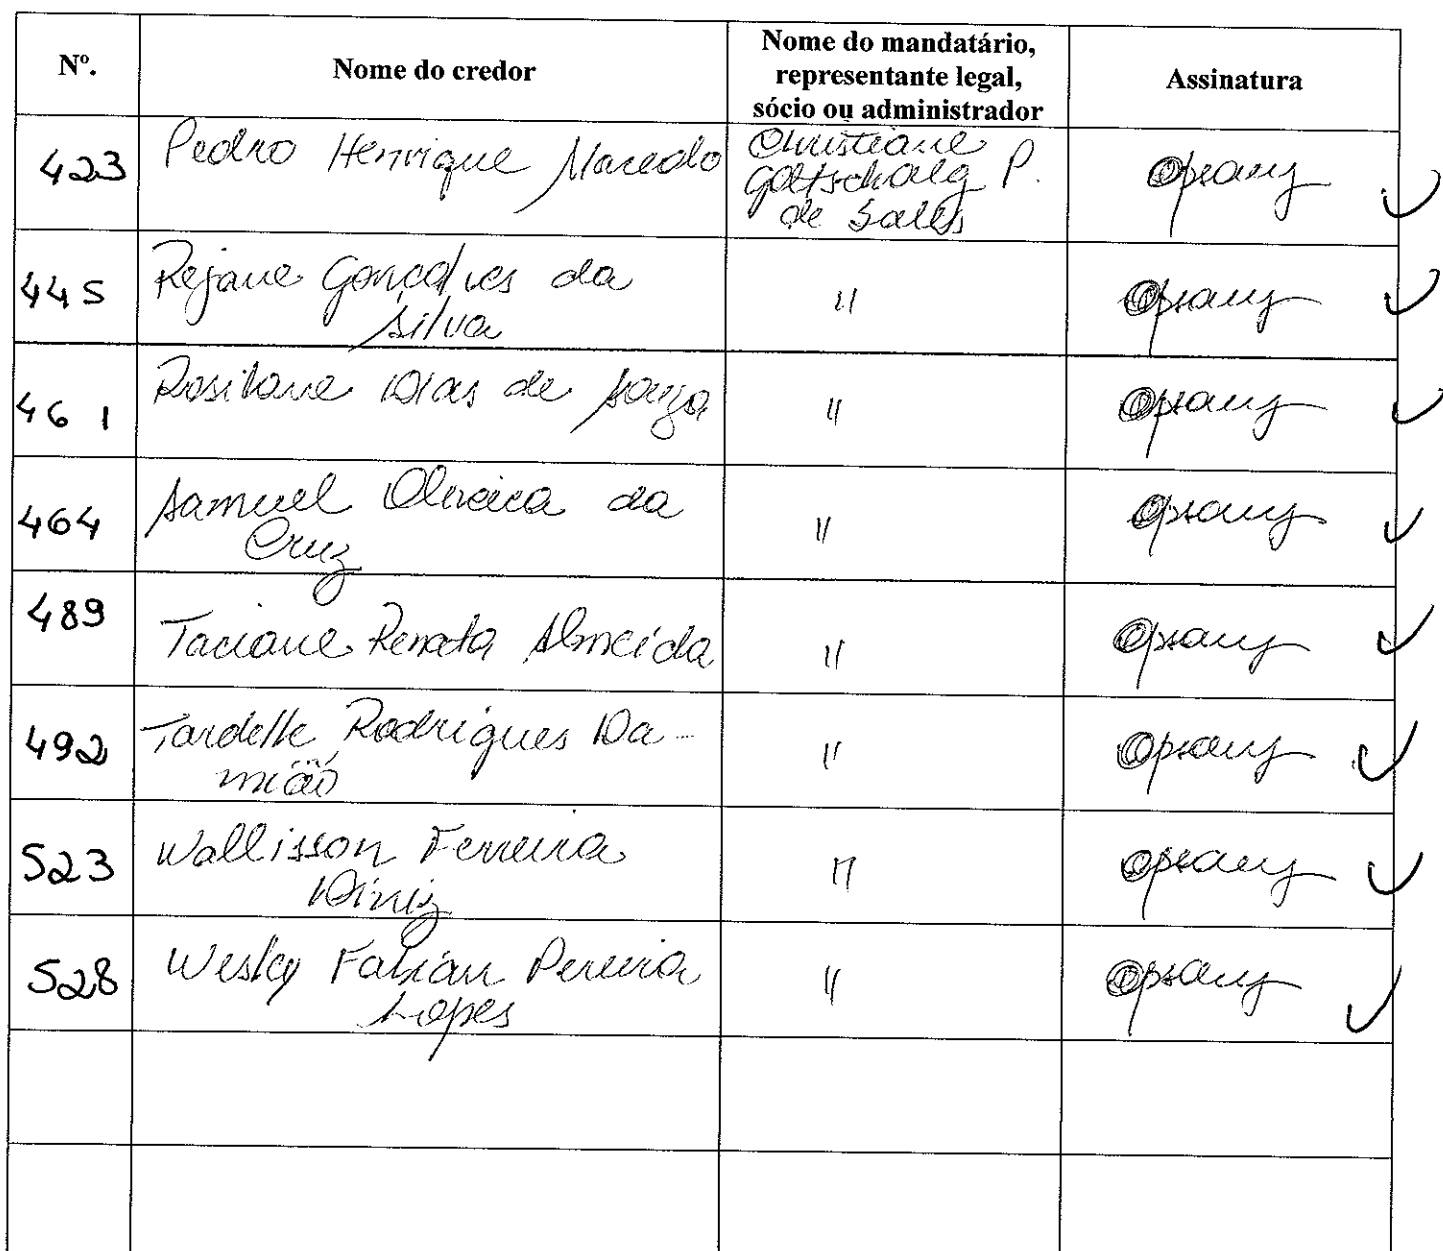 Nº.
Nome do credor
Nome do mandatário,
representante legal,
sócio ou administrador
Assinatura
423
Pedro Henrique Macedo
Christiane
Gottschalg P.
de Salles
445
Rejane Goncalves da
Silva
"
461
Rosilane Dias de Souza
"
464
Samuel Oliveira da
Cruz
"
489
Taciane Renata Almeida
"
492
Tardelle Rodrigues Da-
mião
"
523
Wallisson Ferreira
Diniz
"
528
Wesley Fabian Pereira
Lopes
"